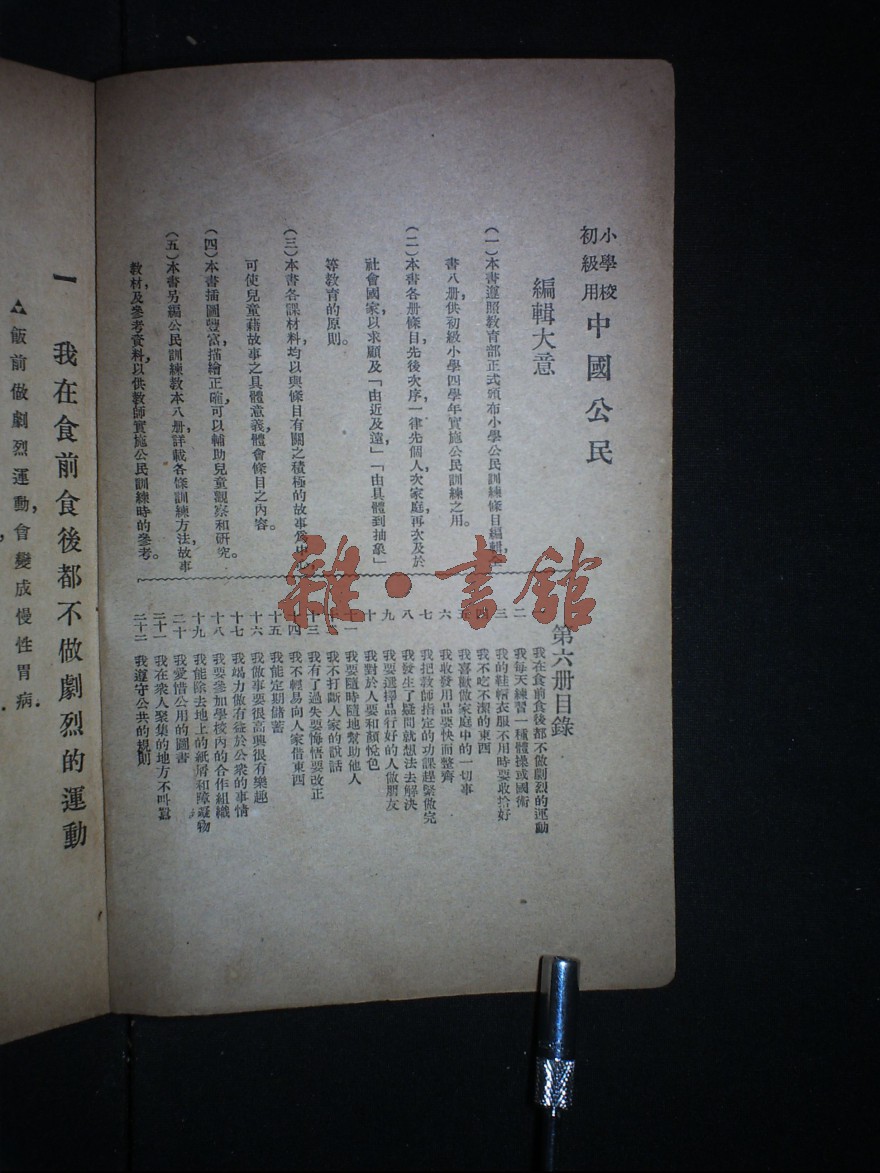 小學校
初級用
中國公民
編輯大意
(一)本書遵照教育部正式頒布小學公民訓練條目編輯,全
書八册供初級小學四學年實施公民訓練之用。
(二)本書各册條目,先後次序,一律先個人,次家庭,再次及於
社會國家,以求顧及「由近及遠」「由具體到抽象」
等教育的原則。
(三)本書各課材料,均以與條目有關之積極的故事爲中心,
可使兒童藉故事之具體意義,體會條目之內容。
(四)本書插圖豐富,描繪正確,可以輔助兒童觀察和研究。
(五)本書另編公民訓練教本八册,詳載各條訓練方法故事
教材,及參考資料,以供教師實施公民訓練時的參考。
第六册目錄
我在食前食後都不做劇烈的運動
二 我每天練習一種體操或國術
三 我的鞋帽衣服不用時要收拾好
四 我不吃不潔的東西
五 我喜歡做家庭中的一切事
六 我收發用品要快而整齊
七 我把教師指定的功課趕緊做完
八 我發生了疑問就想法去解決
九 我要選擇品行好的人做朋友
十 我對於人要和顏悅色
十一 我要隨時隨地幫助他人
十二 我不打斷人家的說話
十三 我有了過失要悔悟要改正
十四 我不輕易向人家借東西
十五 我能定期儲蓄
十六 我做事要很高興很有樂趣
十七 我竭力做有益於公衆的事情
十八 我要參加學校內的合作組織
十九 我能除去地上的紙屑和障礙物
二十 我愛惜公用的圖書
二十一 我在衆人聚集的地方不叫囂
二十二 我遵守公共的規則
一 我在食前食後都不做劇烈的運動
飯前做劇烈運動,會變成慢性胃病.
雜·書館